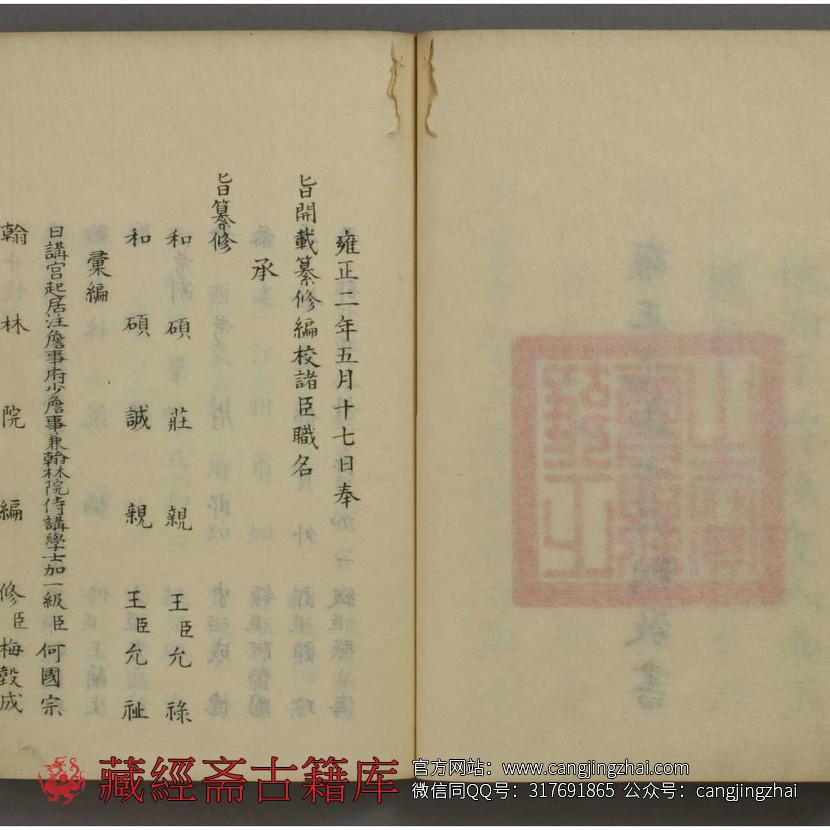 雍正二年五月十七日奉
旨開載纂修編校諸臣職名
承
旨纂修
和碩莊親王臣允祿
和碩誠親王臣允祉
彙編
日講官起居注詹事府少詹事兼翰林院侍講學士加一級臣何國宗
翰林院編修臣梅瑴成
藏經斋古籍库
官方网站：www.cangjingzhai.com
微信同QQ号：317691865 公众号：cangjingzhai